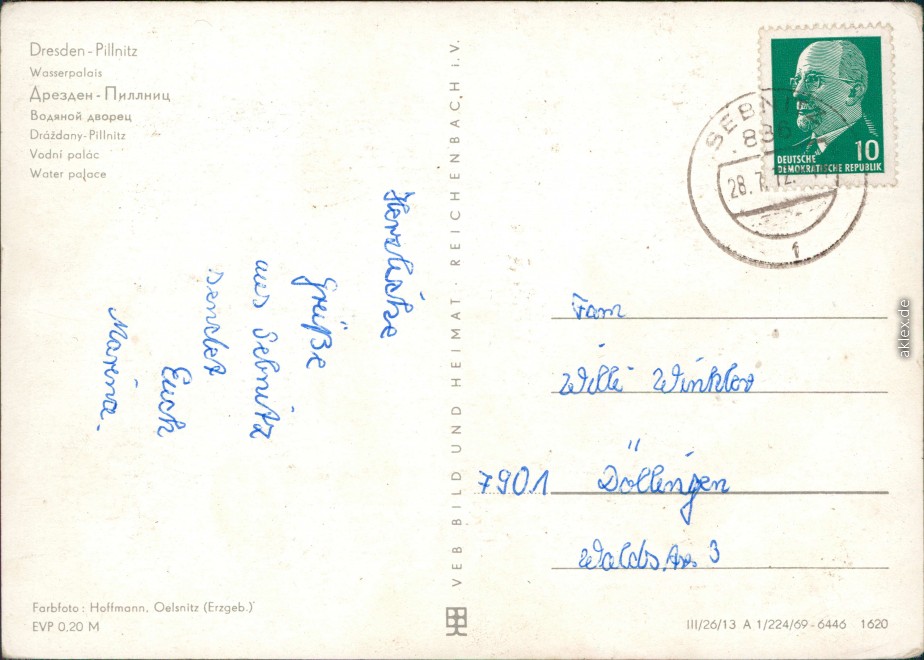 Dresden-Pillnitz
Wasserpalais
Дрезден-Пиллниц
Водяной дворец
Drážďany-Pillnitz
Vodní palác
Water palace
Herzliche
Grüße
aus Sebnitz
sendet
Euch
Marina.
Farbfoto: Hoffmann, Oelsnitz (Erzgeb.)
EVP 0,20 M
VEB BILD UND HEIMAT · REICHENBACH i.V.
DEUTSCHE
DEMOKRATISCHE REPUBLIK
10
28.7.72
Fam
Willi Winkler
7901 Döllingen
Waldstr. 3
III/26/13 A 1/224/69-6446 1620
aklex.de